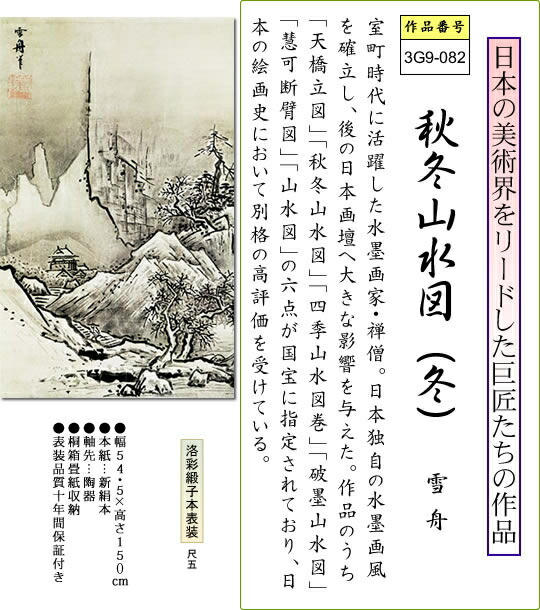 日本の美術界をリードした巨匠たちの作品
作品番号
3G9-082
秋冬山水図（冬）
雪舟
室町時代に活躍した水墨画家・禅僧。日本独自の水墨画風
を確立し、後の日本画壇へ大きな影響を与えた。作品のうち
「天橋立図」「秋冬山水図」「四季山水図巻」「破墨山水図」
「慧可断臂図」「山水図」の六点が国宝に指定されており、日
本の絵画史において別格の高評価を受けている。
雪舟筆
洛彩緞子本表装 尺五
●幅54・5×高さ150cm
●本紙…新絹本
●軸先…陶器
●桐箱畳紙収納
●表装品質十年間保証付き